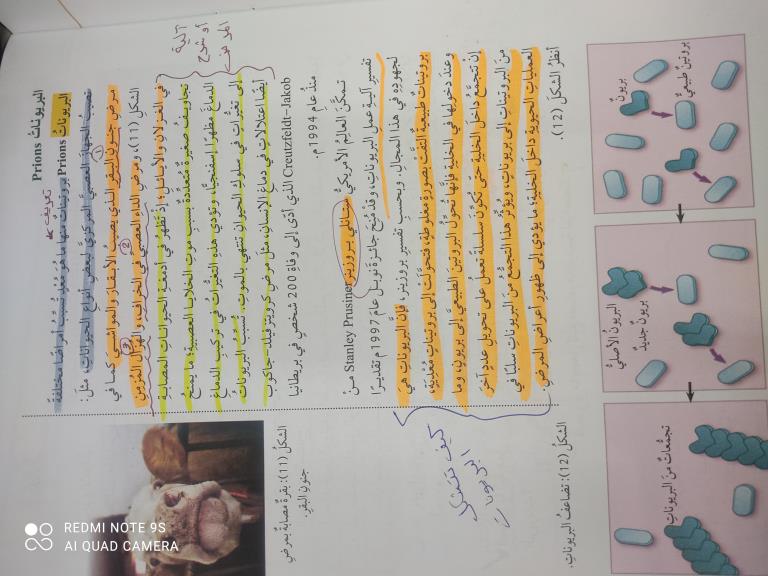 البريونات Prions
تعريف
البريونات Prions بروتينات منها ما هو مُعْدٍ تُسبّب أمراضًا مختلفة
تصيب الجهاز العصبيّ المركزيّ لبعض أنواع الحيوانات، مثل:
مرض جنون البقر الذي يصيب الأبقار والمواشي كما في
الشكل (11)، ومرض الداء العصبيّ في الخراف، والهزال المزمن
في الغزلان والأيائل؛ إذ تظهر في أدمغة الحيوانات المصابة
تجاويف صغيرة متعدّدة بسبب موت الخلايا العصبية؛ ما يمنح
الدماغ مظهرًا إسفنجيًّا، وتؤدي هذه التغيُّرات في تركيب الدماغ
إلى تغيُّرات في سلوك الحيوان تنتهي بالموت. تُسبّب البريونات
أيضًا اعتلالات في دماغ الإنسان، مثل مرض كروتزفيلد-جاكوب
Creutzfeldt–Jakob الذي أدّى إلى وفاة 200 شخص في بريطانيا
منذ عام 1994م.
آلية
أو شرح
المرض
تمكّن العالِم الأمريكيّ ستانلي بروزينر Stanley Prusiner من
تفسير آلية عمل البريونات، وقد مُنِح جائزة نوبل عام 1997م تقديرًا
لجهوده في هذا المجال. وبحسب تفسير بروزينر، فإنّ البريونات هي
بروتينات طبيعية التفّت بصورة مغلوطة، فتحوّلت إلى بروتينات مُعْدية،
وعند دخولها في الخلية فإنّها تُحوّل البروتين الطبيعيّ إلى بريون، وما
إن تتجمّع داخل الخلية حتى تُكوِّن سلسلة تعمل على تحويل عدد آخر
من البروتينات إلى بريونات، ويؤثّر هذا التجمّع من البريونات سلبًا في
العمليات الحيوية داخل الخلية؛ ما يؤدي إلى ظهور أعراض المرض.
أنظر الشكل (12).
كيف تتشكل
البريونات
الشكل (11): بقرة مصابة بمرض
جنون البقر.
الشكل (12): تضاعف البريونات.
بروتين طبيعيّ
بريون
البريون الأصليّ
بريون جديد
تجمّعات من البريونات
REDMI NOTE 9S
AI QUAD CAMERA